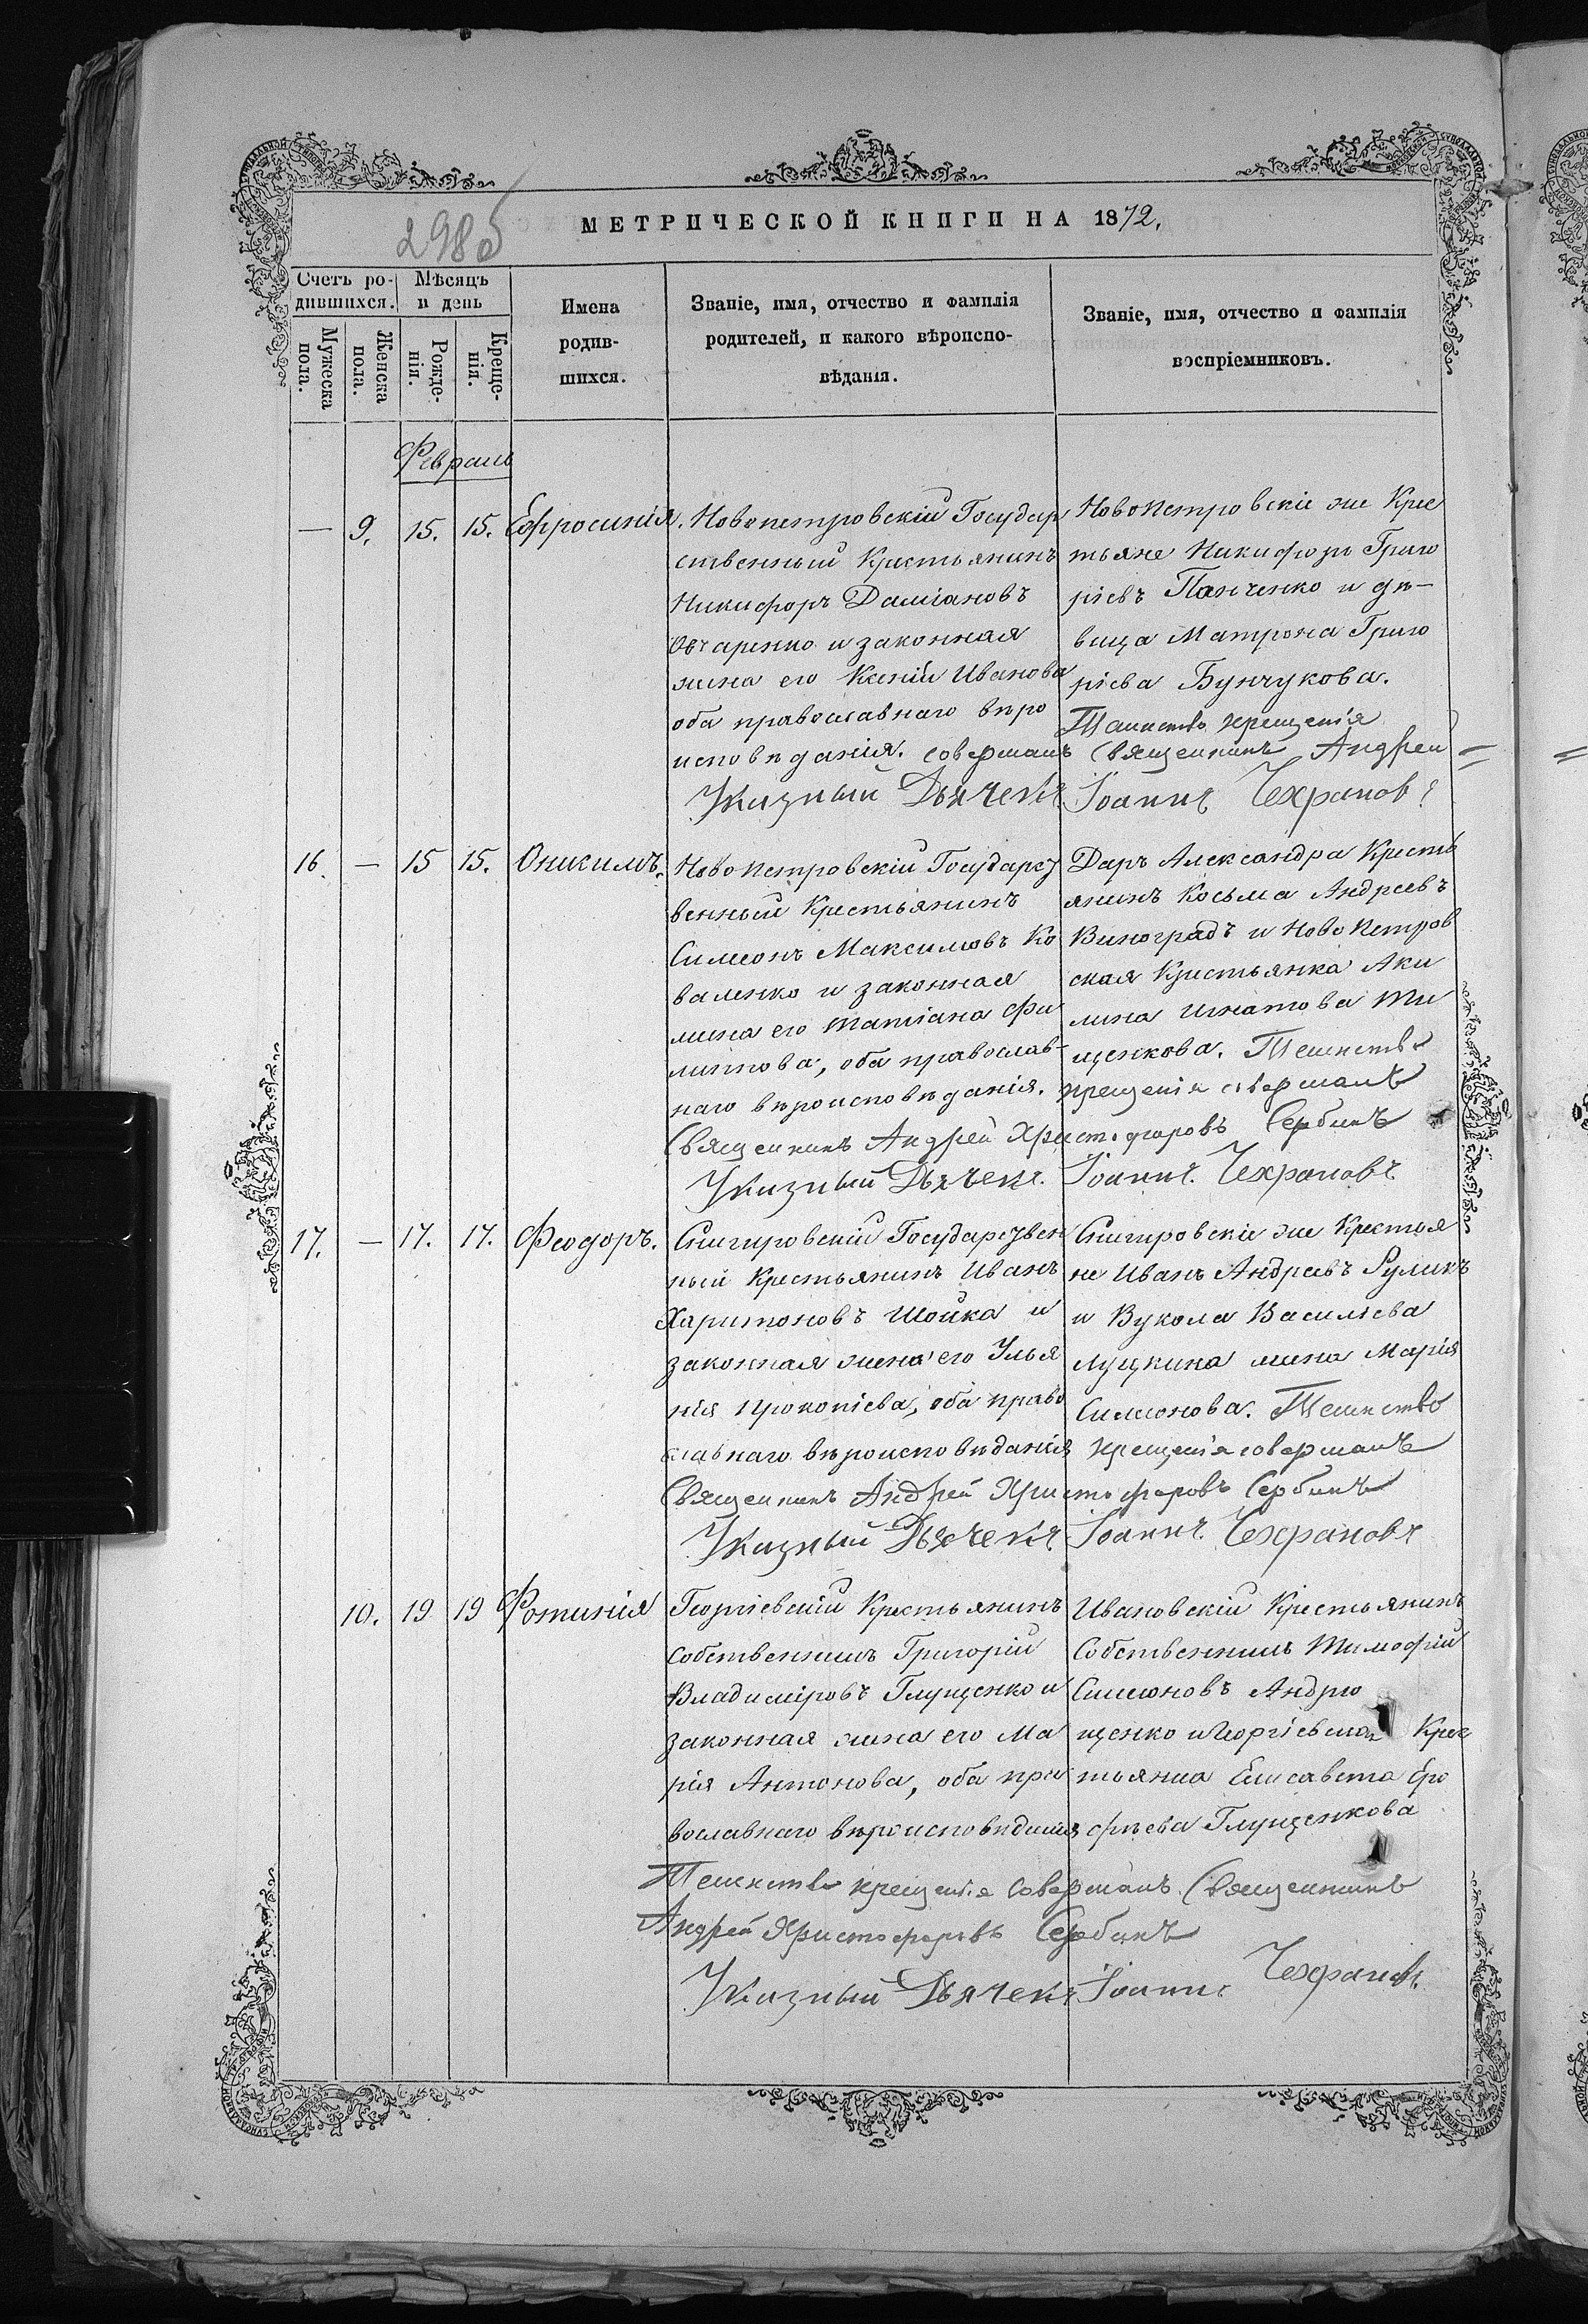 298об
МЕТРИЧЕСКОЙ КНИГИ НА 1872.
Счетъ ро-
дившихся.
Мѣсяцъ
и день
Мужеска
пола.
Женска
пола.
Рожде-
нія.
Креще-
нія.
Имена
родив-
шихся.
Званіе, имя, отчество и фамилія
родителей, и какого вѣроиспо-
вѣданія.
Званіе, имя, отчество и фамилія
воспріемниковъ.
Февраль
— 9. 15. 15. Ефросинія.
Новопетровскій Государ
ственный Крестьянинъ
Никифоръ Даміановъ
Овчаренко и законная
жена его Ксенія Иванова
оба православнаго вѣро
исповѣданія.
Новопетровскіе же Крес
тьяне Никифоръ Григо
ріевъ Панченко и дѣ-
вица Матрона Григо
ріева Бунчукова.
Таинство крещенія
совершалъ Священникъ Андрей =
Указный Дьячекъ Іоаннъ Чехрановъ
16. — 15 15. Онисимъ.
Новопетровскій Государст
венный Крестьянинъ
Симеонъ Максимовъ Ко
валенко и законная
жена его Татіана Фи
липпова, оба православ-
наго вѣроисповѣданія.
Даръ Александра Кресть
янинъ Косьма Андреевъ
Виноградъ и Новопетров
ская Крестьянка Аки
лина Игнатова Ти
щенкова. Таинство
крещенія совершалъ
Священникъ Андрей Христофоровъ Сербинъ
Указный Дьячекъ Іоаннъ Чехрановъ
17. — 17. 17. Феодоръ.
Снигировскій Государствен
ный Крестьянинъ Иванъ
Харитоновъ Шойка и
законная жена его Улья
нія Прокопіева, оба право
славнаго вѣроисповѣданія
Снигировскіе же Крестья
не Иванъ Андреевъ Руликъ
и Вукола Васильева
Луцкина жена Марія
Симеонова. Таинство
крещенія совершалъ
Священникъ Андрей Христофоровъ Сербинъ
Указный Дьячекъ Іоаннъ Чехрановъ
10. 19 19 Фотинія
Георгіевскій Крестьянинъ
Собственникъ Григорій
Владиміровъ Глущенко и
законная жена его Ма
рія Антонова, оба пра
вославнаго вѣроисповѣданія
Ивановскій Крестьянинъ
Собственникъ Тимофей
Симеоновъ Андрю
щенко и Георгіевская Крес
тьянка Елисавета Еро
фѣева Глущенкова
Таинство крещенія совершалъ Священникъ
Андрей Христофоровъ Сербинъ
Указный Дьячекъ Іоаннъ Чехрановъ